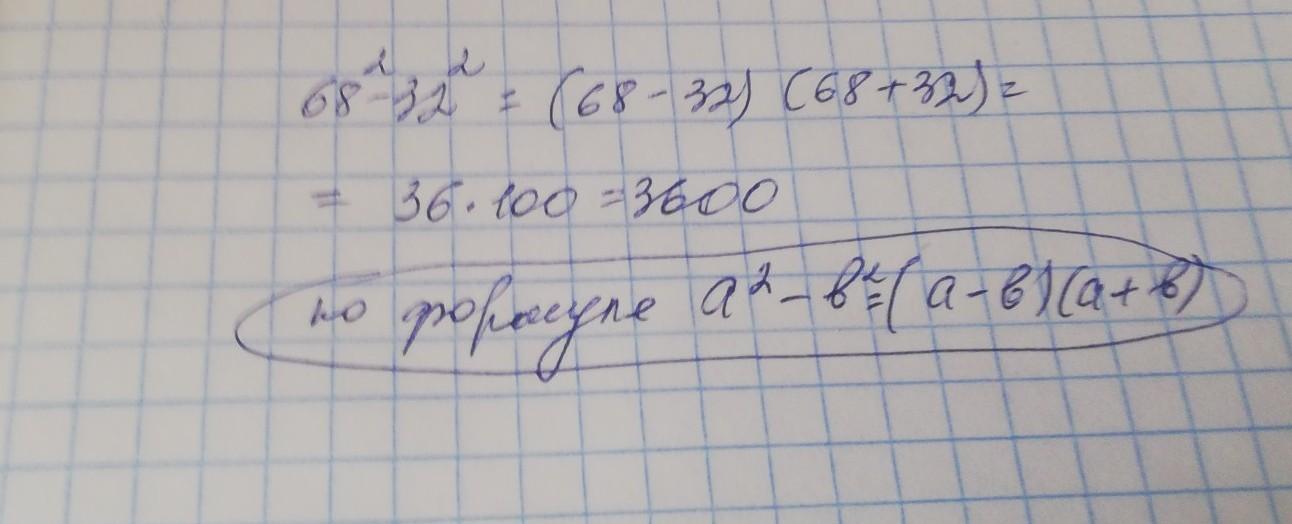 68² - 32² = (68 - 32) (68 + 32) =
= 36 · 100 = 3600
по формуле a² - в² = (a - в)(a + в)